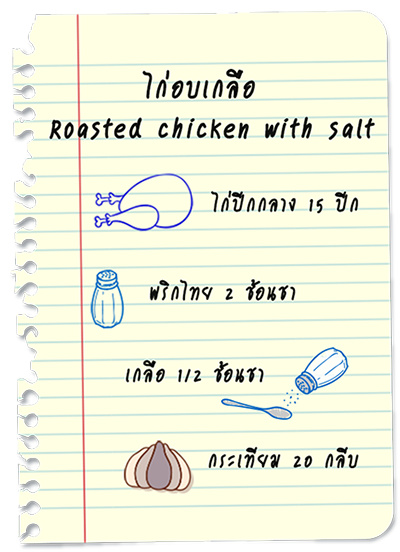 ไก่อบเกลือ
Roasted chicken with salt
ไก่ปีกกลาง 15 ปีก
พริกไทย 2 ช้อนชา
เกลือ 1/2 ช้อนชา
กระเทียม 20 กลีบ